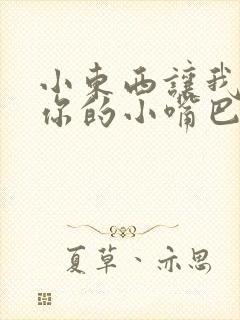 小东西讓我
你的小嘴巴
夏草、亦思